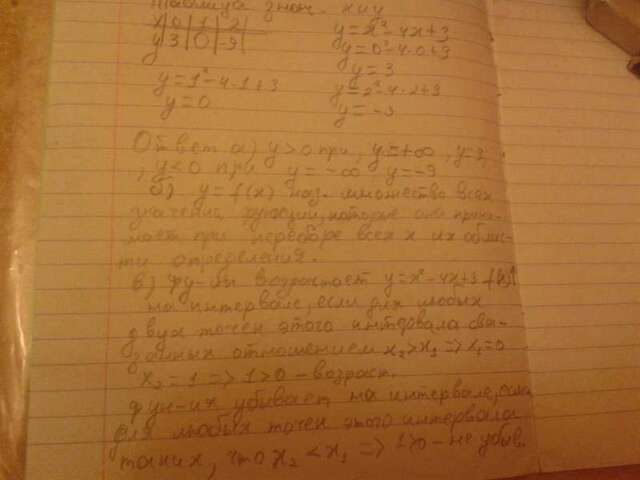 Таблица знач. х и у
x | 0 | 1 | 2 |
y | 3 | 0 | -3 |
y = x² - 4x + 3
y = 0² - 4·0 + 3
y = 3
y = 1² - 4·1 + 3
y = 0
y = 2² - 4·2 + 3
y = -3
Ответ: а) y > 0 при, y = +∞ y = 3
, y < 0 при y = -∞ y = -3
б) y = f(x) наз. множество всех
значений функции, которые она прини-
мает при переборе всех x из облас-
ти определения.
в) фу-ия возрастает y = x² - 4x + 3
на интервале, если для любых
двух точек этого интервала свя-
занных отношением x₂ > x₁ => x₁ = 0
x₂ = 1 => 1 > 0 - возраст.
фун-ия убывает на интервале, если
для любых точек этого интервала
таких, что x₂ < x₁ => 1 > 0 - не убыв.